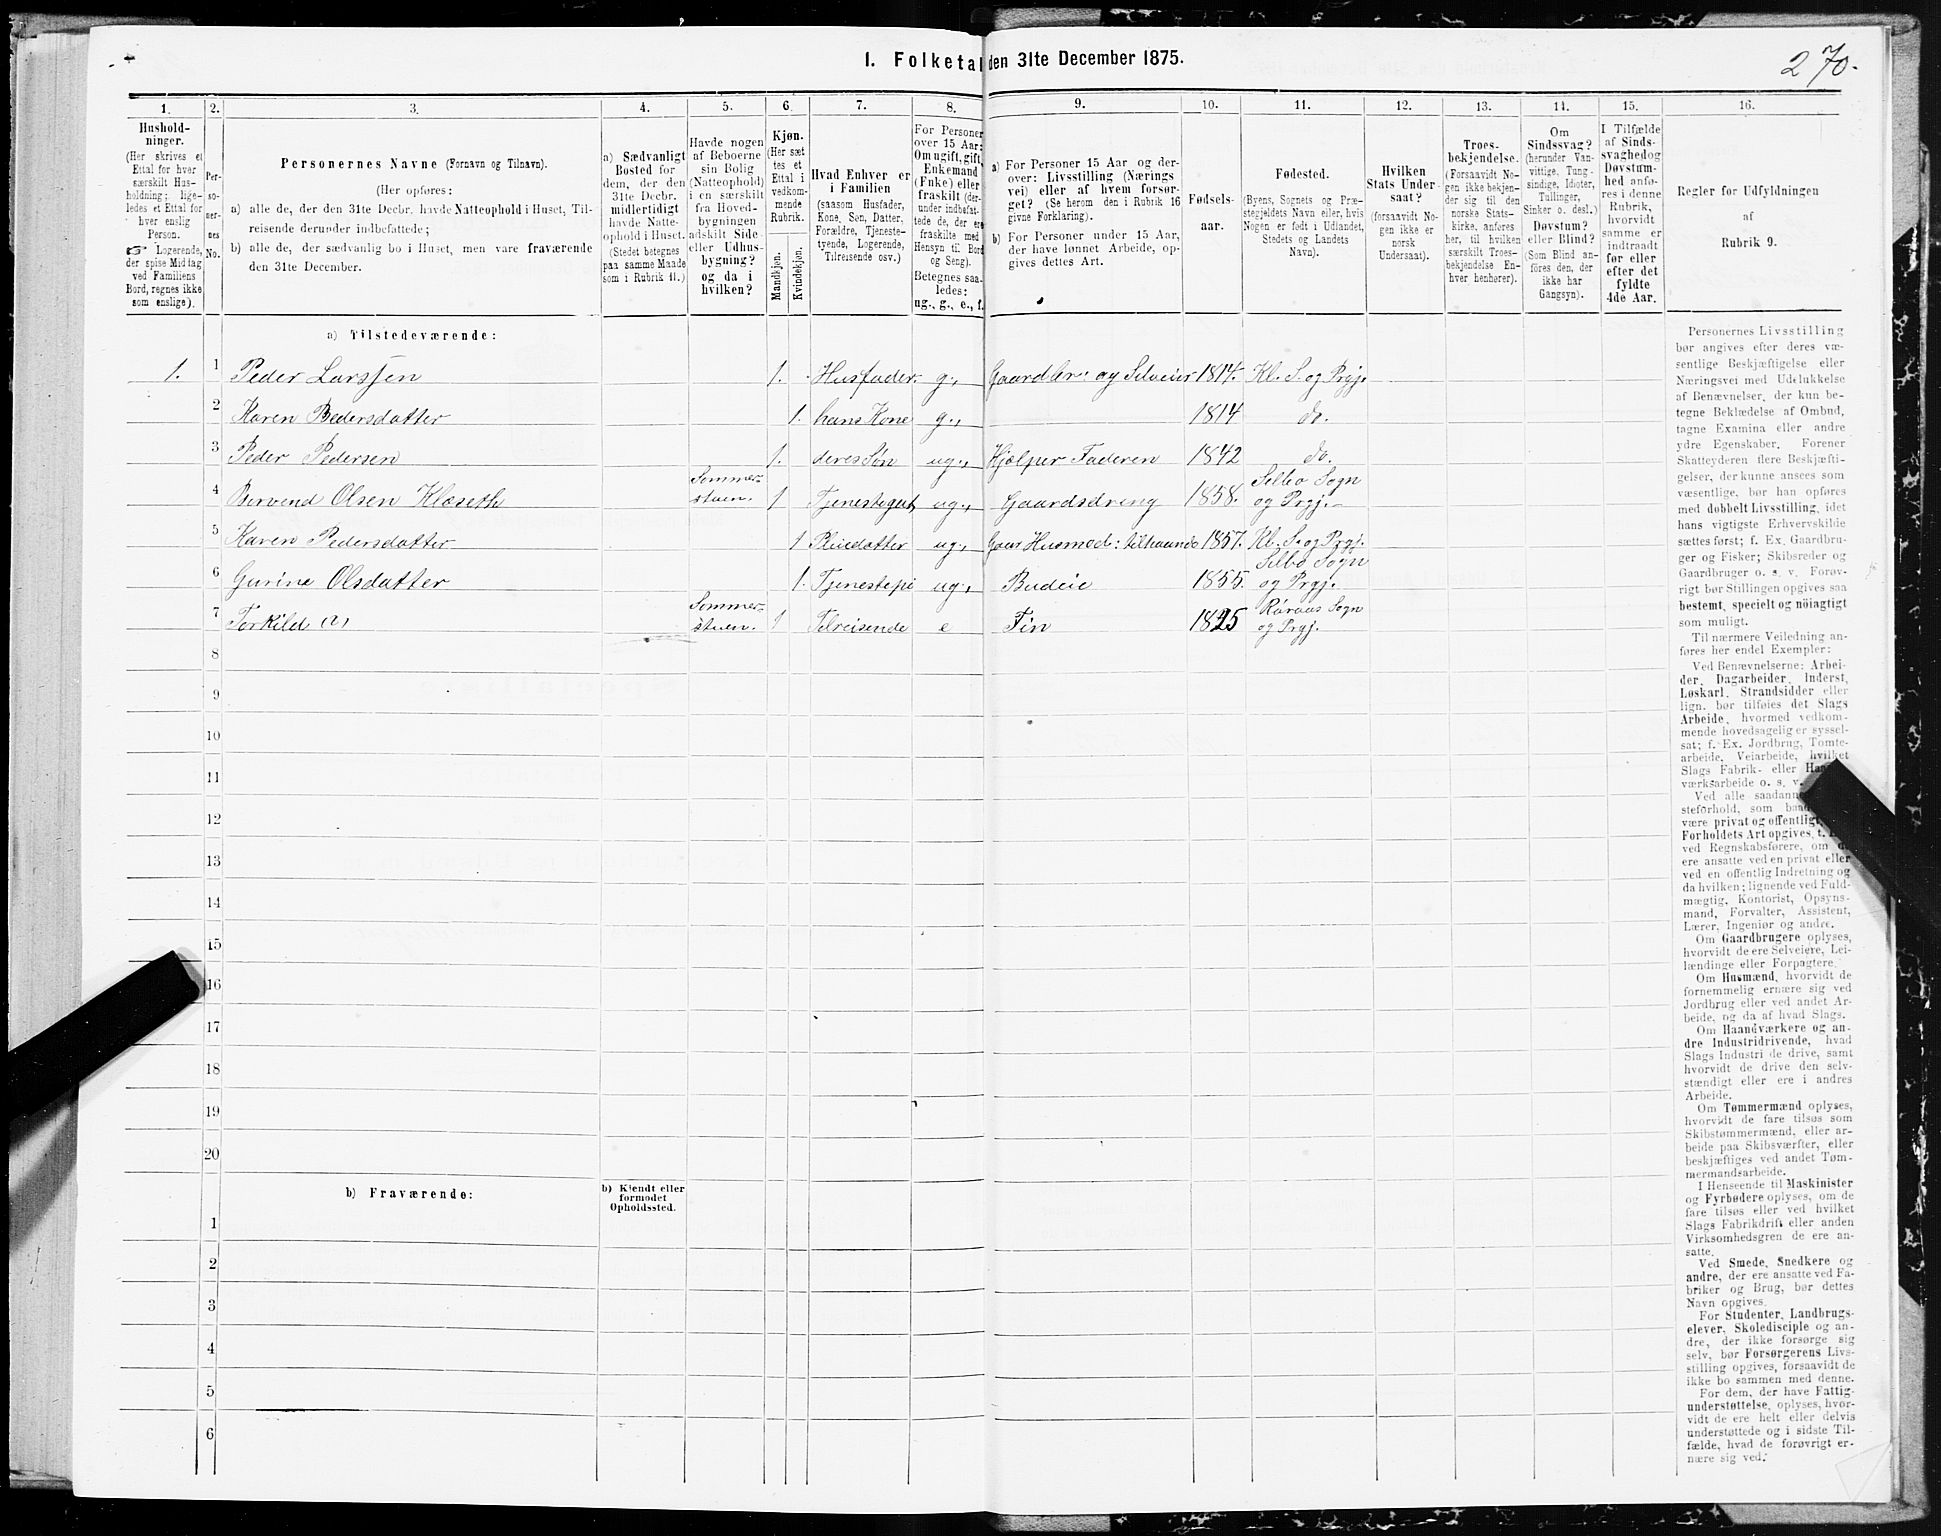 1. Folketal den 31te December 1875.
270.
1. 2. 3. 4. 5. 6. 7. 8. 9. 10. 11. 12. 13. 14. 15. 16.
Hushold-
ninger.
(Her skrives et
Ettal for hver
særskilt Hus-
holdning; lige-
ledes et Ettal for
hver enslig
Person.
☞ Logerende,
der spise Middag
ved Familiens
Bord, regnes ikke
som enslige).
Per-
so-
ner-
nes
No.
Personernes Navne (Fornavn og Tilnavn).
(Her opføres:
a) alle de, der den 31te Decbr. havde Natteophold i Huset, Til-
reisende derunder indbefattede;
b) alle de, der sædvanlig bo i Huset, men vare fraværende
den 31te December.
a) Sædvanligt
Bosted for
dem, der den
31te Decbr.
midlertidigt
havde Natte-
ophold i Huset.
(Stedet betegnes
paa samme Maade
som i Rubrik 11.)
Havde nogen
af Beboerne
sin Bolig
(Natteophold)
i en særskilt
fra Hoved-
bygningen
adskilt Side-
eller Udhus-
bygning?
og da i
hvilken?
Kjøn.
(Her sæt
tes et
Ettal i
vedkom-
mende
Rubrik.
Mandkjøn.
Kvindekjøn.
Hvad Enhver er
i Familien
(saasom Husfader,
Kone, Søn, Datter,
Forældre, Tjeneste-
tyende, Logerende,
Tilreisende osv.)
For Personer
over 15 Aar:
Om ugift, gift,
Enkemand
(Enke) eller
fraskilt (der-
under indbefat-
tede de, der ere
fraskilte med
Hensyn til Bord
og Seng).
Betegnes saa-
ledes:
ug., g., e., f.
a) For Personer 15 Aar og der-
over: Livsstilling (Nærings
vei) eller af hvem forsør-
get? (Se herom den i Rubrik 16
givne Forklaring).
b) For Personer under 15 Aar,
der have lønnet Arbeide, op-
gives dettes Art.
Fødsels-
aar.
Fødested.
(Byens, Sognets og Præ-
stegjeldets Navn eller, hvis
Nogen er født i Udlandet,
Stedets og Landets
Navn).
Hvilken
Stats Under-
saat?
(forsaavidt No-
gen ikke er
norsk
Undersaat).
Troes-
bekjendelse.
(Forsaavidt No-
gen ikke bekjen-
der sig til den
norske Stats-
kirke, anføres
her, til hvilken
særskilt Troes-
bekjendelse En-
hver henhører).
Om
Sindssvag?
(herunder Van-
vittige, Tung-
sindige, Idioter,
Tullinger,
Sinker o. desl.)
Døvstum?
eller Blind?
(Som Blind an-
føres den, der
ikke har
Gangsyn).
I Tilfælde
af Sinds-
svaghed og
Døvstum-
hed anfø-
res i denne
Rubrik,
hvorvidt
samme er
indtraadt
før eller
efter det
fyldte
4de Aar.
Regler for Udfyldningen
af
Rubrik 9.
a) Tilstedeværende:
1. 1 Peder Larssen 1. Husfader. g., Gaardbr: og Selveier 1814. Kl. S. og Prgj.
2 Karen Pedersdatter 1. hans Kone g., 1814 do.
3 Peder Pedersen 1. deres Søn ug., Hjælper Faderen 1842 do.
4 Bervend Olsen Klæseth Sommer-
stuen. 1 Tjenestegut ug., Gaardsdreng 1858. Selbo Sogn
og Prgj.
5 Karen Pedersdatter 1 Pleiedatter ug., Gaar Husmod: tilhaande 1857. Kl. S. og Prgj.
6 Gurine Olsdatter 1. Tjenestepi ug., Budeie 1855. Selbo Sogn
og Prgj.
7 Torkild (?) Sommer-
stuen. 1 Tilreisende e Fin 1825 Røraas Sogn
og Prgj.
8
9
10
11
12
13
14
15
16
17
18
19
20
b) Fraværende:
b) Kjendt eller
formodet
Opholdssted.
1
2
3
4
5
6
Personernes Livsstilling
bør angives efter deres væ-
sentlige Beskjæftigelse eller
Næringsvei med Udelukkelse
af Benævnelser, der kun be-
tegne Beklædelse af Ombud,
tagne Examina eller andre
ydre Egenskaber. Forener
Skatteyderen flere Beskjæfti-
gelser, der kunne ansees som
væsentlige, bør han opføres
med dobbelt Livsstilling, idet
hans vigtigste Erhvervskilde
sættes først; f. Ex. Gaardbru-
ger og Fisker; Skibsreder og
Gaardbruger o. s. v. Forøv-
rigt bør Stillingen opgives saa
bestemt, specielt og nöiagtigt
som muligt.
Til nærmere Veiledning an-
føres her endel Exempler:
Ved Benævnelserne: Arbei-
der, Dagarbeider, Inderst,
Løskarl, Strandsidder eller
lign. bør tilføies det Slags
Arbeide, hvormed vedkom-
mende hovedsagelig er syssel-
sat; f. Ex. Jordbrug, Tomte-
arbeide, Veiarbeide, hvilket
Slags Fabrik- eller
værksarbeide o. s. v.
Ved alle saadanne
steforhold, som
være privat og offentligt,
Forholdets Art opgives, t.
ved Regnskabsførere, om
ere ansatte ved en privat eller
ved en offentlig Indretning og
da hvilken; lignende ved Fuld-
mægtig, Kontorist, Opsyns-
mand, Forvalter, Assistent,
Lærer, Ingeniør og andre.
Om Gaardbrugere oplyses,
hvorvidt de ere Selveiere, Lei-
lændinge eller Forpagtere.
Om Husmænd, hvorvidt de
fornemmelig ernære sig ved
Jordbrug eller ved andet Ar-
beide, og da af hvad Slags.
Om Haandværkere og an-
dre Industridrivende, hvad
Slags Industri de drive, samt
hvorvidt de drive den selv-
stændigt eller ere i andres
Arbeide.
Om Tømmermænd oplyses,
hvorvidt de fare tilsøs som
Skibstømmermænd, eller ar-
beide paa Skibsværfter, eller
beskjæftiges ved andet Tøm-
mermandsarbeide.
I Henseende til Maskinister
og Fyrbødere oplyses, om de
fare tilsøs eller ved hvilket
Slags Fabrikdrift eller anden
Virksomhedsgren de ere an-
satte.
Ved Smede, Snedkere og
andre, der ere ansatte ved Fa-
briker og Brug, bør dettes
Navn opgives.
For Studenter, Landbrugs-
elever, Skoledisciple og an-
dre, der ikke forsørge sig
selv, bør Forsørgerens Livs-
stilling opgives, forsaavidt de
ikke bo sammen med denne.
For dem, der have Fattig-
understøttelse, oplyses, hvor-
vidt de ere helt eller delvis
understøttede og i sidste Til-
fælde, hvad de forøvrigt er-
nære sig ved.